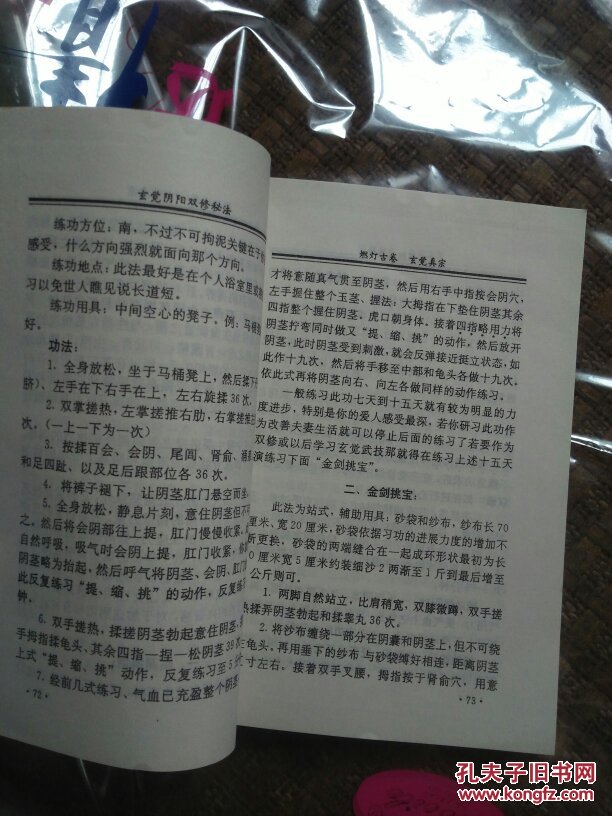 玄觉阴阳双修秘法
练功方位:南,不过不可拘泥关键在于
感受,什么方向强烈就面向那个方向。
练功地点:此法最好是在个人浴室里或
习以免世人瞧见说长道短。
练功用具:中间空心的凳子。例:马桶
好。
功法:
1. 全身放松,坐于马桶凳上,然后揉下
脐)、左手在下右手在上,左右旋揉36次
2. 双掌搓热,左掌搓推右肋,右掌搓推
次。(一上一下为一次)
3. 按揉百会、会阴、尾闾、肾俞、涌
和足四趾、以及足后跟部位各36次。
4. 将裤子褪下,让阴茎肛门悬空而坐
5. 全身放松,静息片刻,意住阴茎
之,然后将会阴部往上提,肛门慢慢收紧
自然呼吸,吸气时会阴上提,肛门收紧,
阴茎略为抬起,然后呼气将阴茎、会阴、肛门
此反复练习“提、缩、挑”的动作,反复练习
钟。
6. 双手搓热,揉搓阴茎勃起意住阴茎,
手拇指揉龟头,其余四指一捏一松阴茎39
上式“提、缩、挑”动作,反复练习至5分
7. 经前几式练习、气血已充盈整个阴茎
·72·
燃灯古卷 玄觉真宗
才将意随真气贯至阴茎,然后用右手中指按会阴穴,
左手握住整个玉茎、握法:大拇指在下垫住阴茎其余
四指握住阴茎。虎口朝身体。接着四指略用力将
阴茎拧弯同时做又“提、缩、挑”的动作,然后放开
阴茎,此时阴茎受到刺激,就会反弹接近挺立状态,如
此作十九次,然后将手移至中部和龟头各做十九次。
依此式再将阴茎向右、向左各做同样的动作练习。
一般练习此功七天到十五天就有较为明显的力
度进步,特别是你的爱人感受最深,若你研习此功作
为改善夫妻生活就可以停止后面的练习了若要作为
双修或以后学习玄觉武技那就得在练习上述十五天
演练习下面“金剑挑宝”。
二、金剑挑宝:
此法为站式,辅助用具:砂袋和纱布,纱布长70
厘米、宽20厘米,砂袋依据习功的进展力度的增加不
断更换,砂袋的两端缝合在一起成环形状最初为长
0厘米宽5厘米约装细沙2两渐至1斤到最后增至
公斤则可。
1. 两脚自然站立,比肩稍宽,双膝微蹲,双手搓
热揉弄阴茎勃起和揉睾丸36次。
2. 将沙布缠绕一部分在阴囊和阴茎上,但不可绕
龟头,再用垂下的纱布与砂袋缚好相连,距离阴茎
寸左右。接着双手叉腰,拇指按于肾俞穴,用意
·73·
孔夫子旧书网
www.kongfz.com